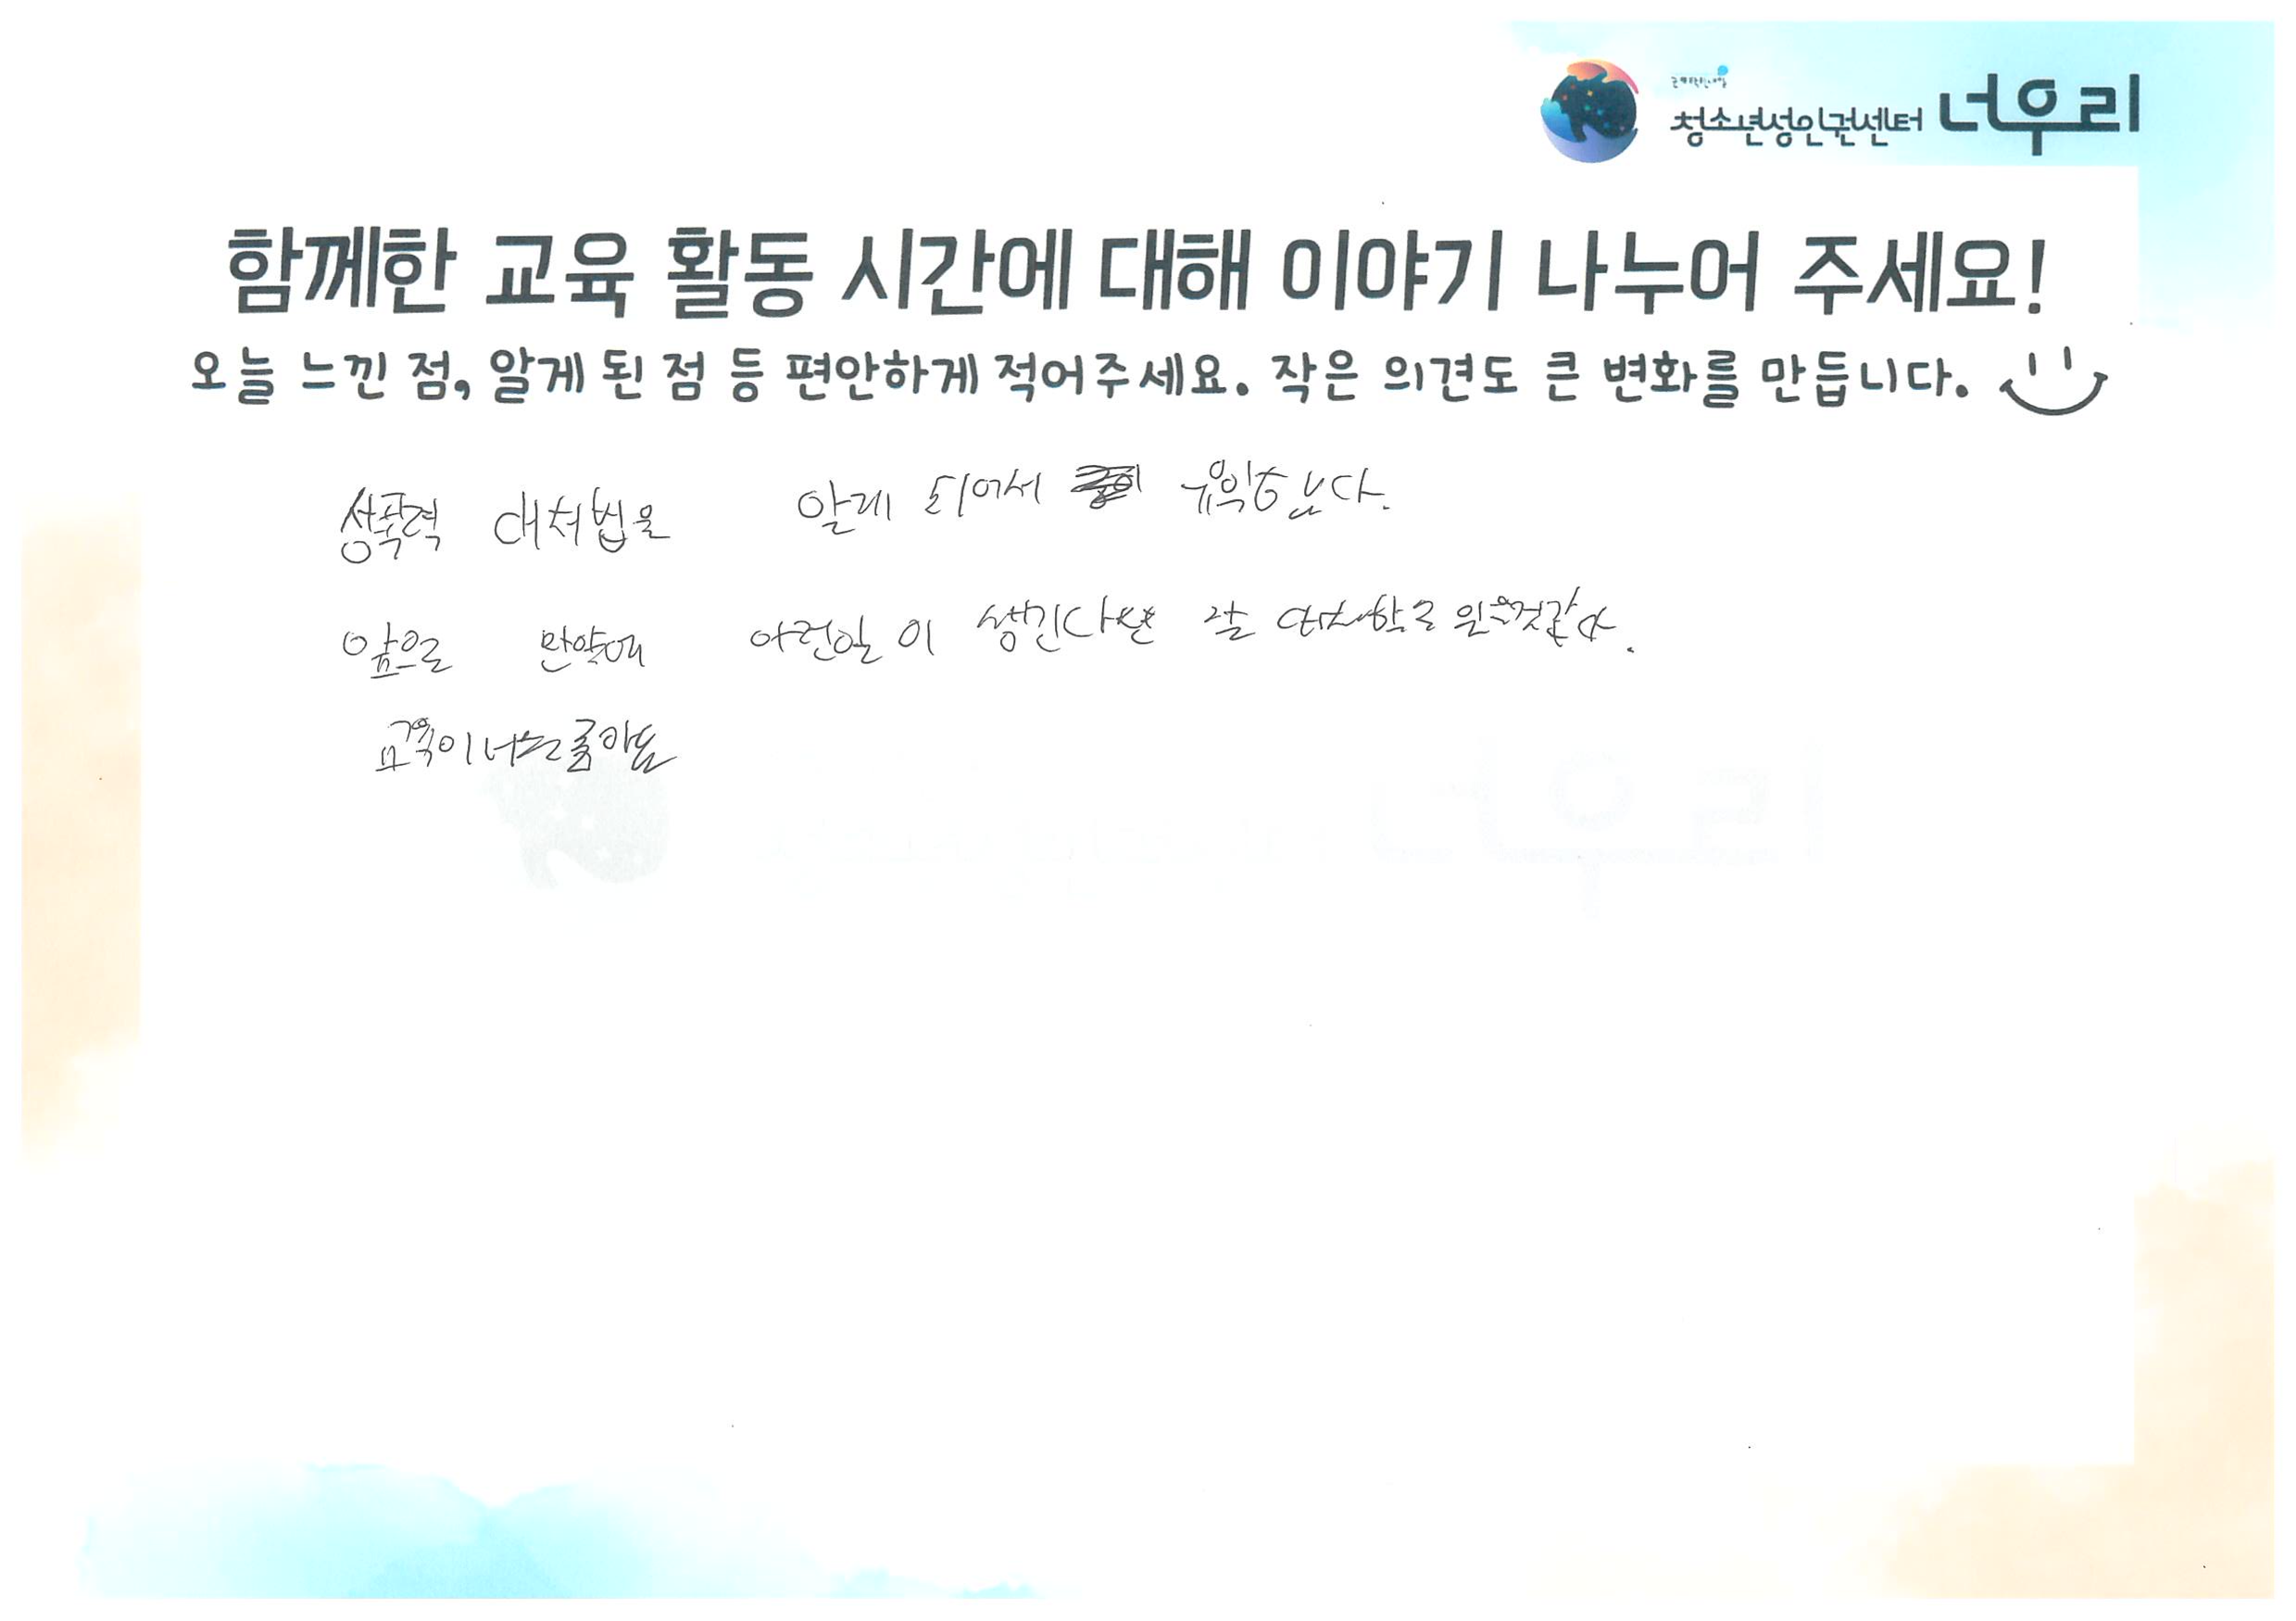 청소년성인권센터 너우리
함께한 교육 활동 시간에 대해 이야기 나누어 주세요!
오늘 느낀 점, 알게 된 점 등 편안하게 적어주세요. 작은 의견도 큰 변화를 만듭니다.
성폭력 대처법을 알게 되어서 유익했습니다.
앞으로 만약에 이런일이 생긴다면 잘 대처할 수 있을것같다.
교육이